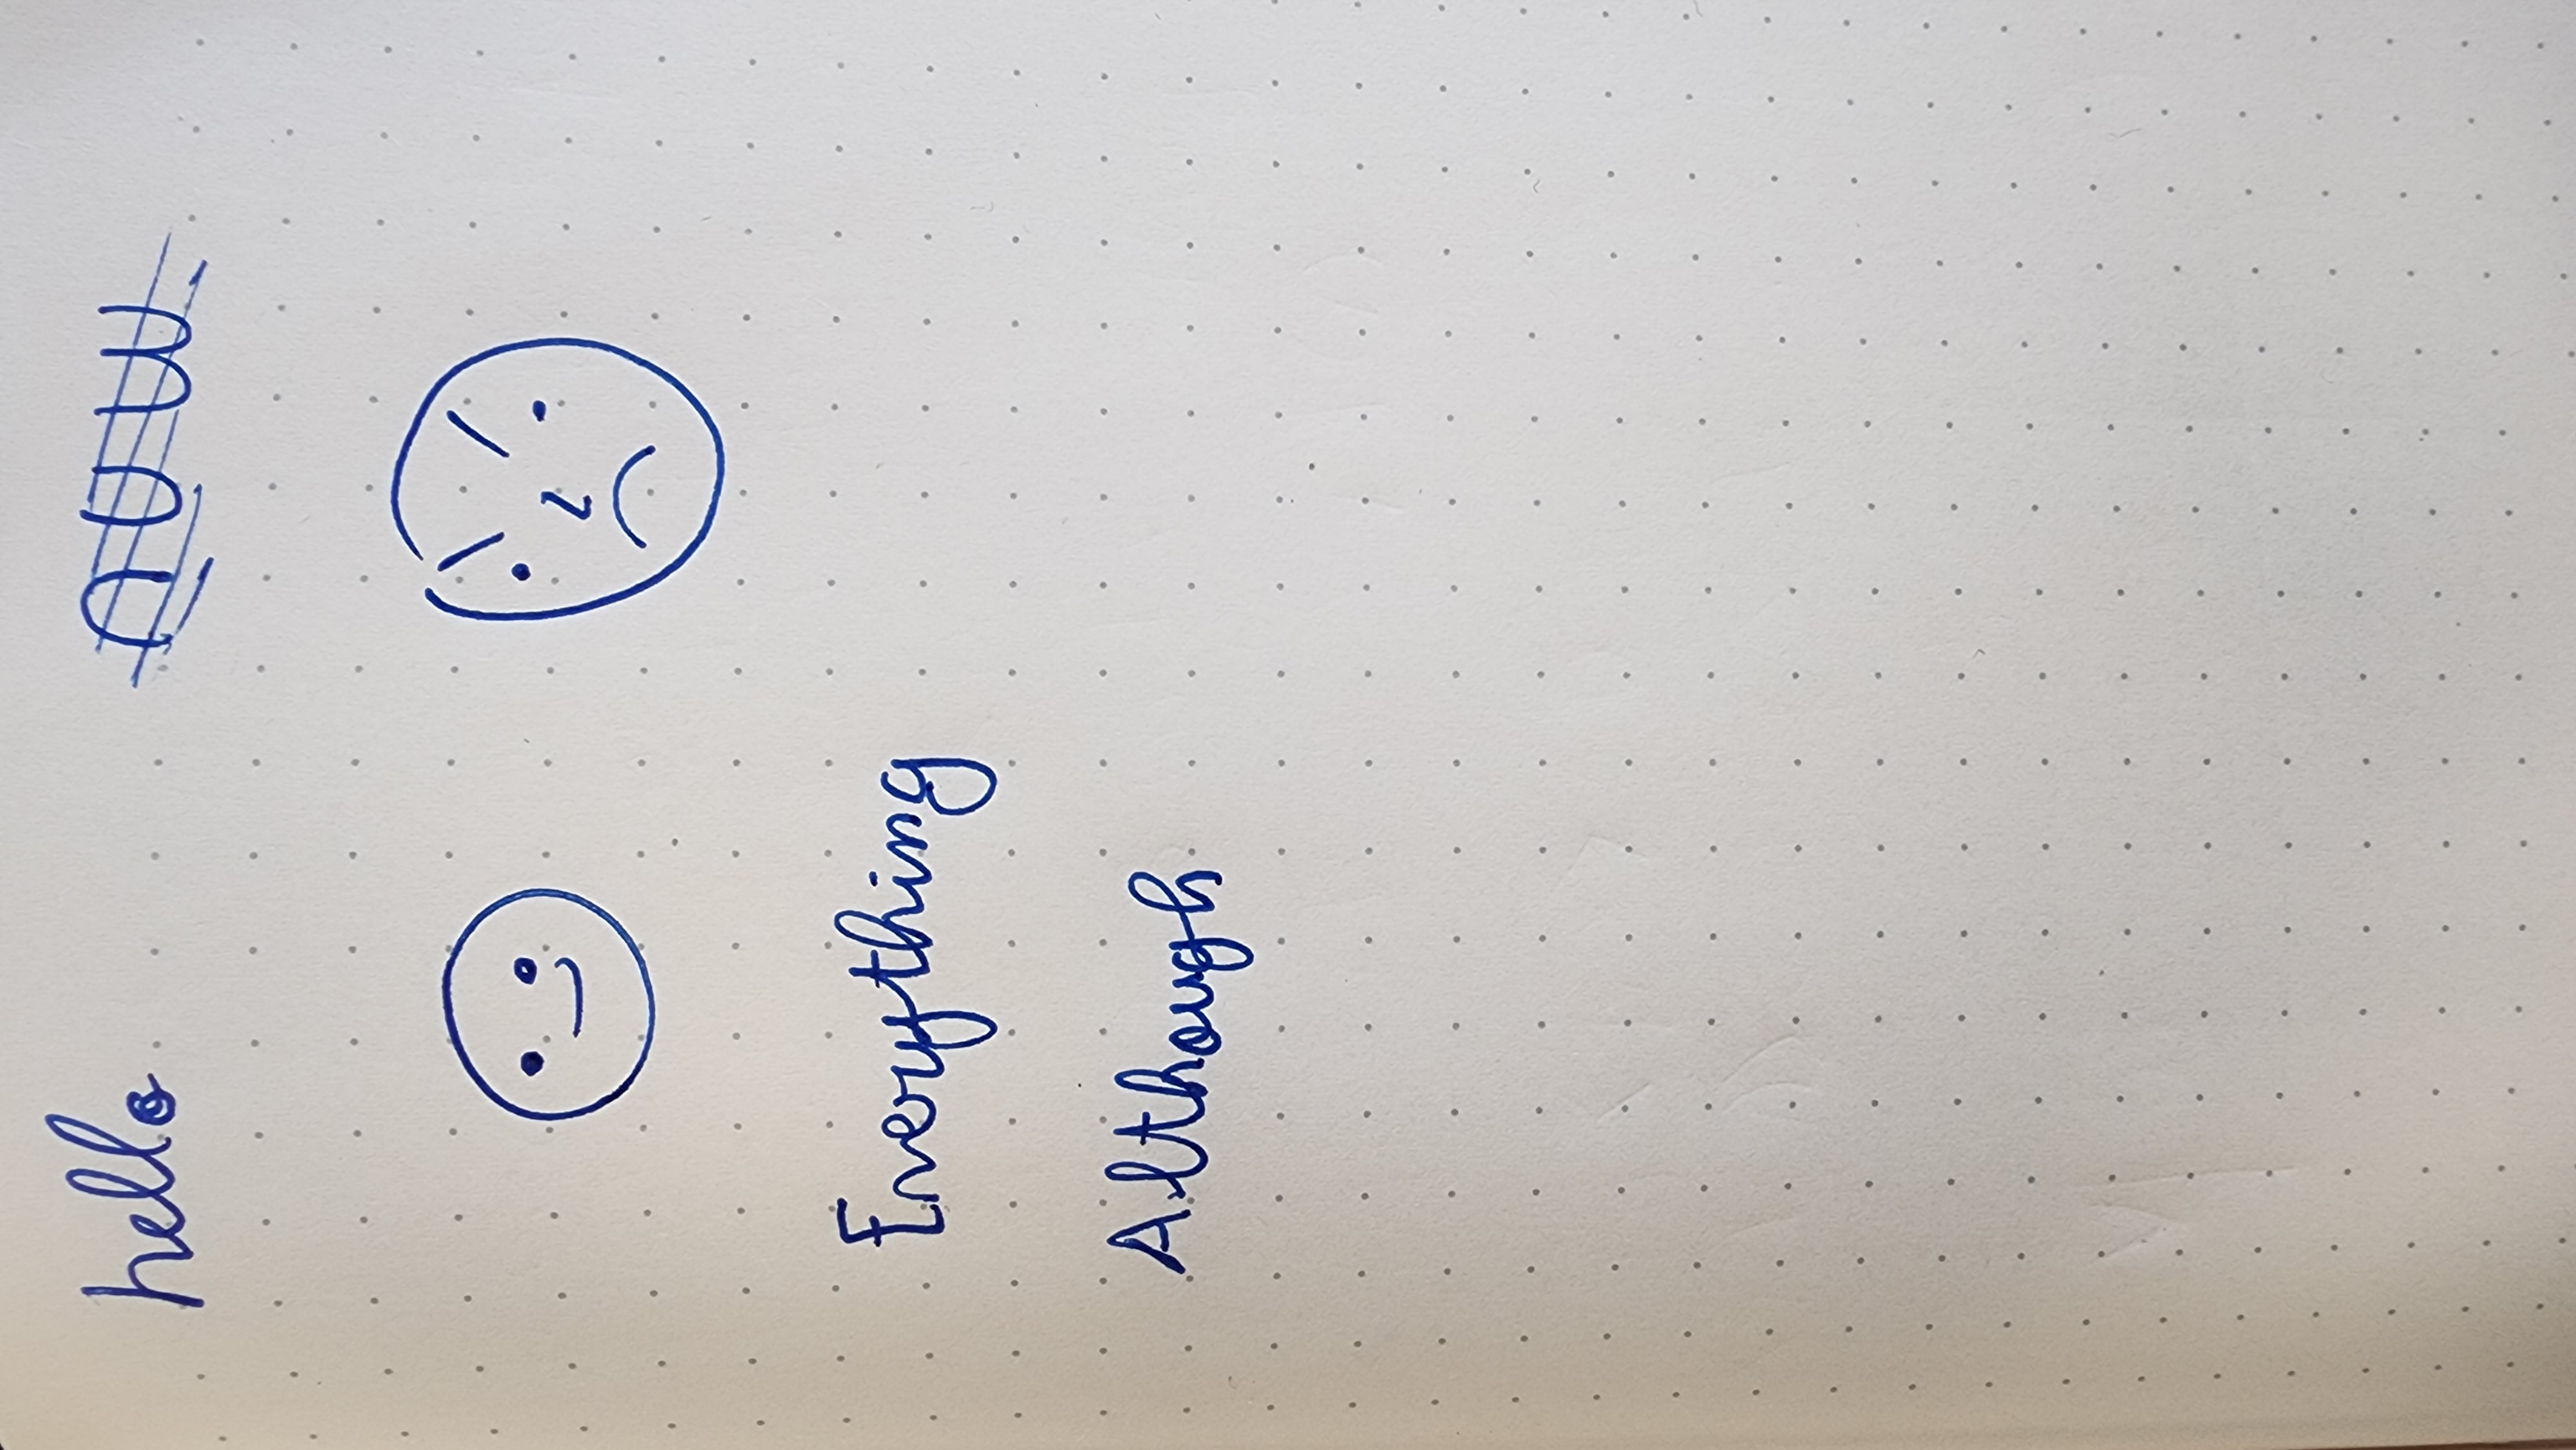 hello nuw
Everything
Although